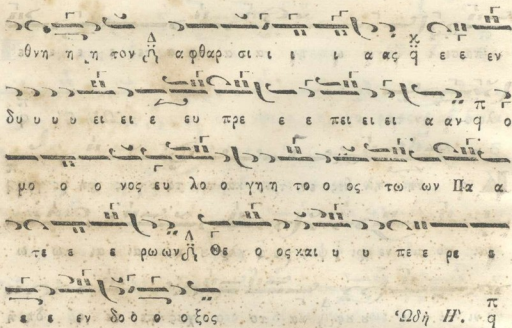 θνη η η τον Δ ἄ α φθαρ σι ι ι ι α ας χ q ε ε εν
δυ υ υ υ ει ει ε ευ πρε ε ε πει ει ει α αν π q ο
μο ο ο νος ευ λο ο γη η το ο ος τω ων Πα α
τε ε ε ρω ων Δ Θε ο ος και υ υ πε ε ρε ε
ε ε εν δο ο ο ο ξος Ὠδὴ Η'. π q